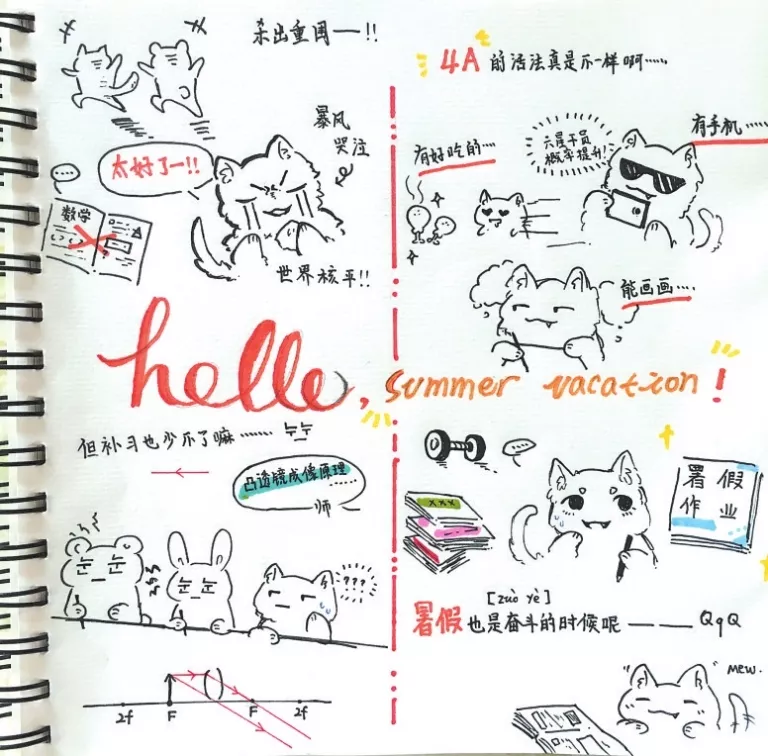 杀出重围一!!
太好了一!!
暴风
哭泣
数学
世界核平!!
4A的活法真是不一样啊……
有好吃的…
六星干员
概率提升!
有手机……
能画画….
hello, summer vacation!
但补习也少不了嘛……… 눈눈
凸透镜成像原理……
师
???
2f
F
F
2f
xxx
暑假
作业
[zuò yè]
暑假也是奋斗的时候呢——— QqQ
mew.